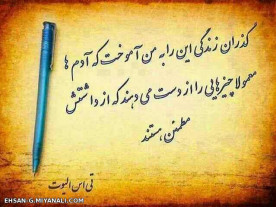 گذران زندگی این را به من آموخت که آدم ها
معمولا چیزهایی را از دست می دهند که از داشتنش
مطمئن هستند
تی اس الیوت
EHSAN-G.MIYANALI.COM